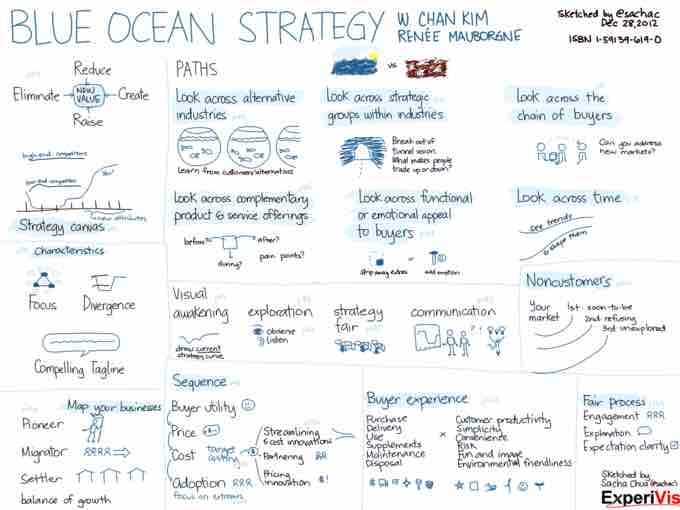 BLUE OCEAN STRATEGY
W. CHAN KIM
RENÉE MAUBORGNE
Sketched by @sachac
Dec 28, 2012
ISBN 1-59139-619-0
Reduce
Eliminate
NEW
VALUE
Create
Raise
high-end competitors
low-end competitors
Strategy canvas
PATHS
vs
Look across alternative
industries
Learn from customers/alternatives
Look across strategic
groups within industries
Break out of
tunnel vision.
What makes people
trade up or down?
Look across the
chain of buyers
Can you address
new markets?
Look across complementary
product & service offerings
before?
after?
during?
pain points?
Look across functional
or emotional appeal
to buyers
strip away extras
or
add emotion
Look across time
see trends
& shape them
Characteristics
Focus
Divergence
Compelling Tagline
Visual
awakening
draw current
strategy curve
exploration
observe
listen
strategy
fair
communication
Noncustomers
Your
market
1st: soon-to-be
2nd: refusing
3rd: unexplored
Map your businesses
Pioneer
Migrator
Settler
balance of growth
Sequence
Buyer utility
Price
Cost
target
costing
Adoption
focus on extremes
Streamlining
& cost innovations
Partnering
Pricing
innovation
Buyer experience
Purchase
Delivery
Use
Supplements
Maintenance
Disposal
x
Customer productivity
Simplicity
Convenience
Risk
Fun and image
Environmental friendliness
Fair process
Engagement
Explanation
Expectation clarity
Sketched by
Sacha Chua (@sachac)
ExperiVis